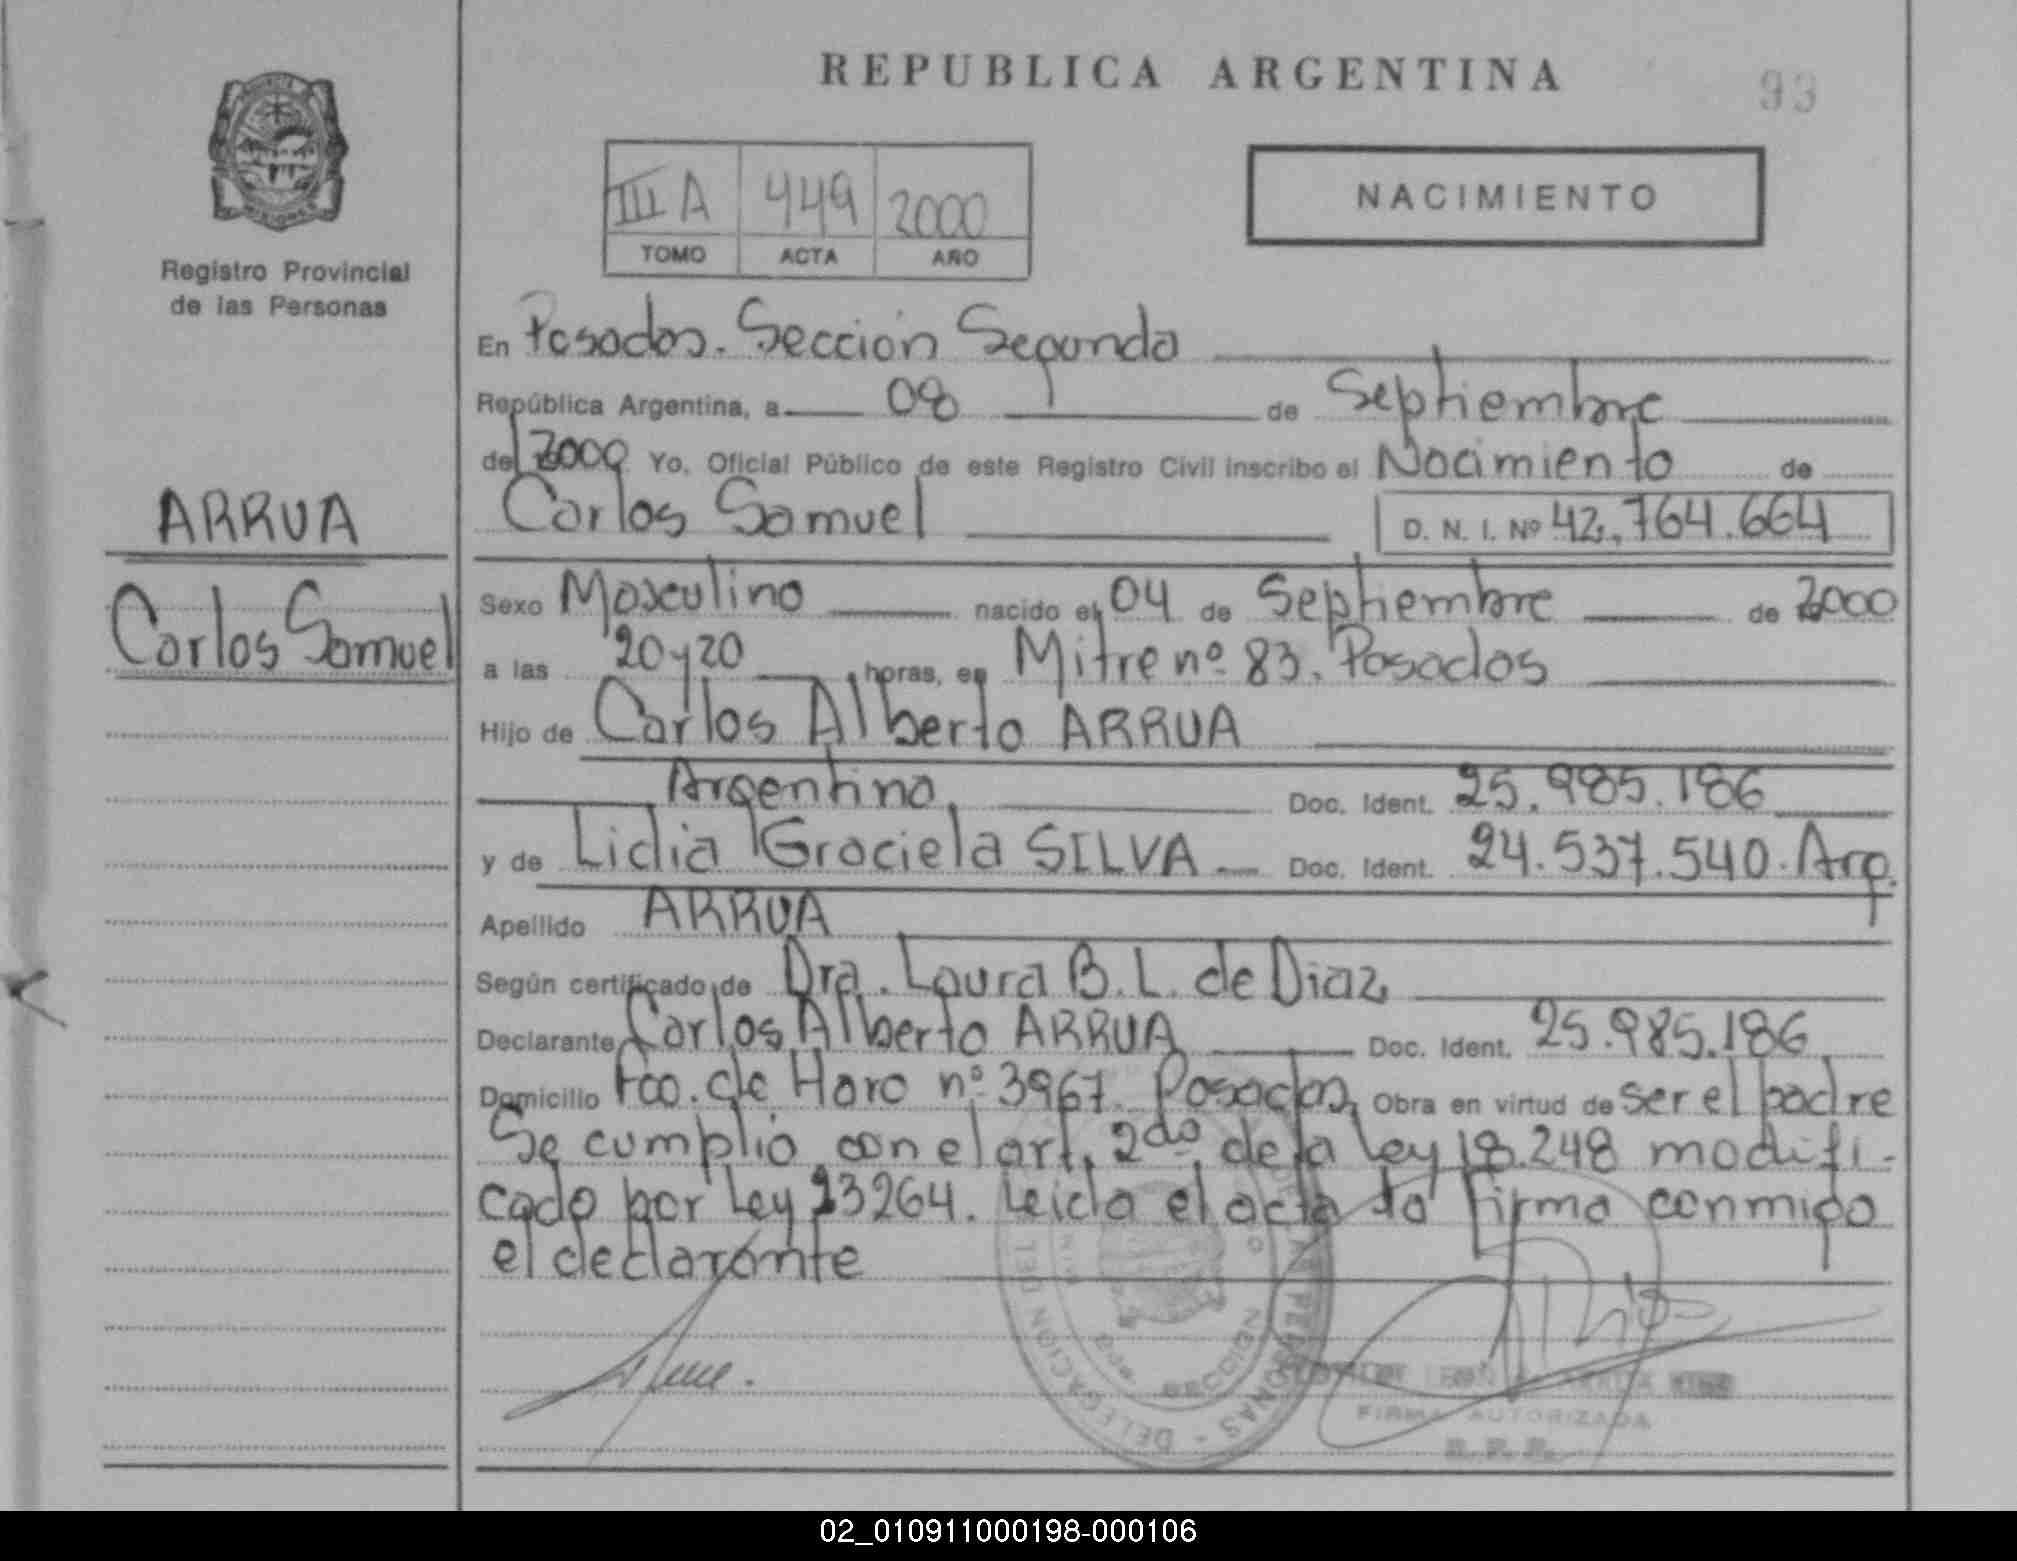 REPUBLICA ARGENTINA
93
III A 449 2000
TOMO ACTA AÑO
NACIMIENTO
Registro Provincial
de las Personas
ARRUA
Carlos Samuel
En Posadas. Sección Segunda
República Argentina, a 08 de Septiembre
de 2000 Yo, Oficial Público de este Registro Civil inscribo el Nacimiento de
Carlos Samuel D. N. I. Nº 42.764.664
Sexo Masculino nacido el 04 de Septiembre de 2000
a las 20 y 20 horas, en Mitre nº 83. Posadas
Hijo de Carlos Alberto ARRUA
Argentino, Doc. Ident. 25.985.186
y de Lidia Graciela SILVA Doc. Ident. 24.537.540. Arg.
Apellido ARRUA
Según certificado de Dra. Laura B. L. de Diaz
Declarante Carlos Alberto ARRUA Doc. Ident. 25.985.186
Domicilio Fco. de Haro nº 3967. Posadas, Obra en virtud de ser el padre
Se cumplió con el art. 2do de la ley 18.248 modifi-
cado por ley 23264. Leida el acta la firma conmigo
el declarante
DELEGACION DEL
PERSONAS
SECCION
FIRMA AUTORIZADA
02_010911000198-000106